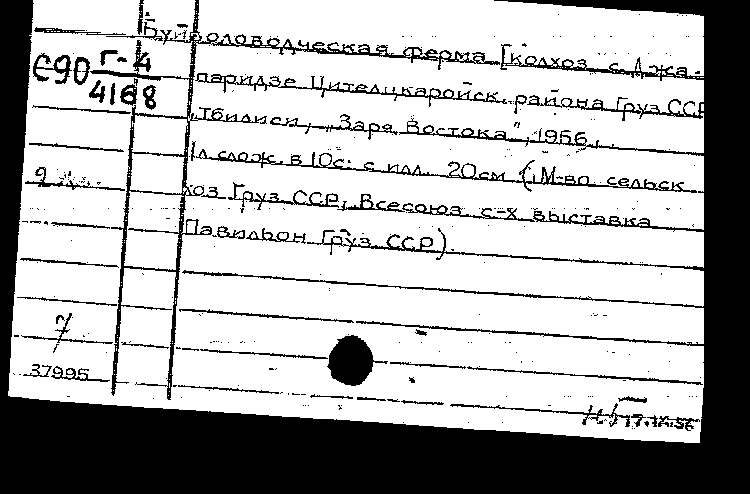 Буйволоводческая ферма [колхоз с. Джа-
паридзе Цителцкаройск. района Груз ССР
Тбилиси, „Заря Востока", 1956,
1л слож. в 10с. с илл. 20см (М-во сельск
хоз Груз ССР, Всесоюз с-х выставка
Павильон Груз ССР).
С90 Г-4
4168
7
37995
17.IX.56